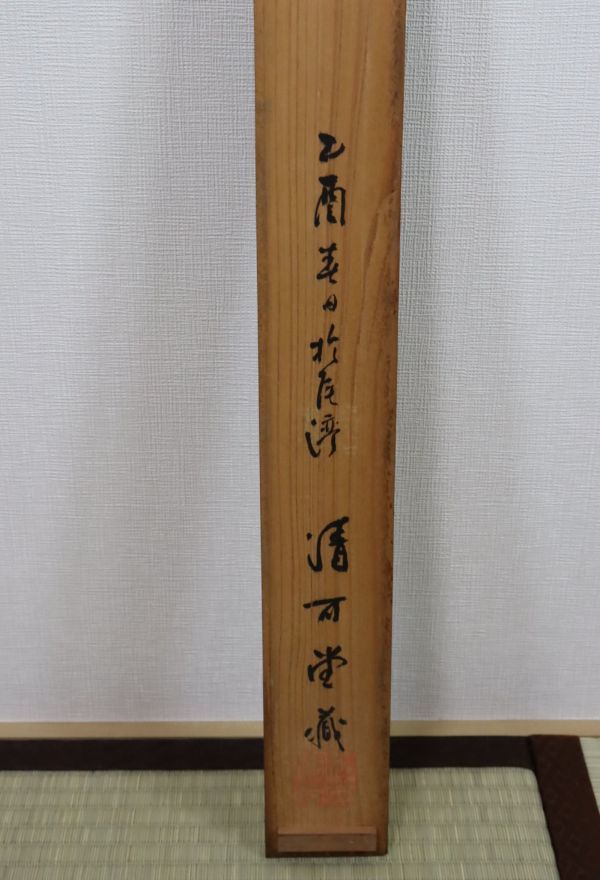 乙酉春日於尾湾 清可堂蔵